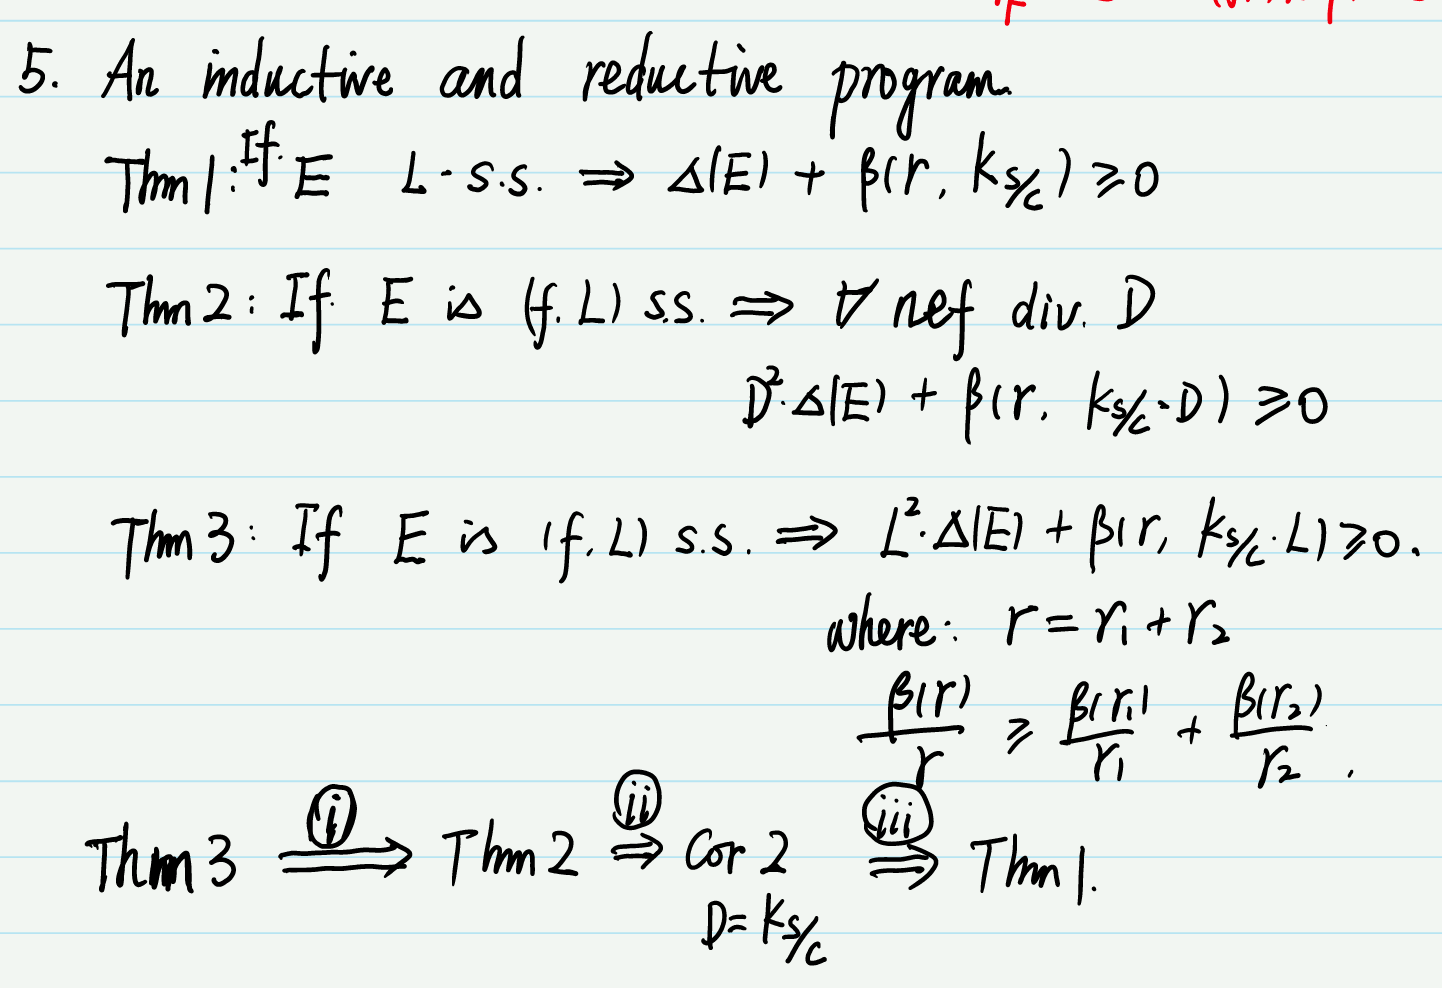 5. An inductive and reductive program.
Thm 1: If E L-s.s. ⇒ Δ(E) + β(r, K_{S/C}) ≥ 0
Thm 2: If E is (f, L) s.s. ⇒ ∀ nef div. D
D²·Δ(E) + β(r, K_{S/C}·D) ≥ 0
Thm 3: If E is (f, L) s.s. ⇒ L²·Δ(E) + β(r, K_{S/C}·L) ≥ 0.
where: r = r₁ + r₂
β(r)/r ≥ β(r₁)/r₁ + β(r₂)/r₂.
Thm 3 ⇒(i) Thm 2 ⇒(ii) Cor 2 ⇒(iii) Thm 1.
D = K_{S/C}